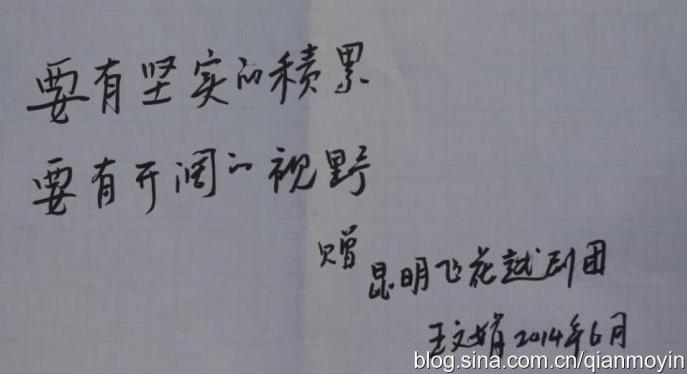 要有坚实的積累
要有开阔的视野
赠
昆明飞花越剧团
王文娟 2014年6月
blog.sina.com.cn/qianmoyin